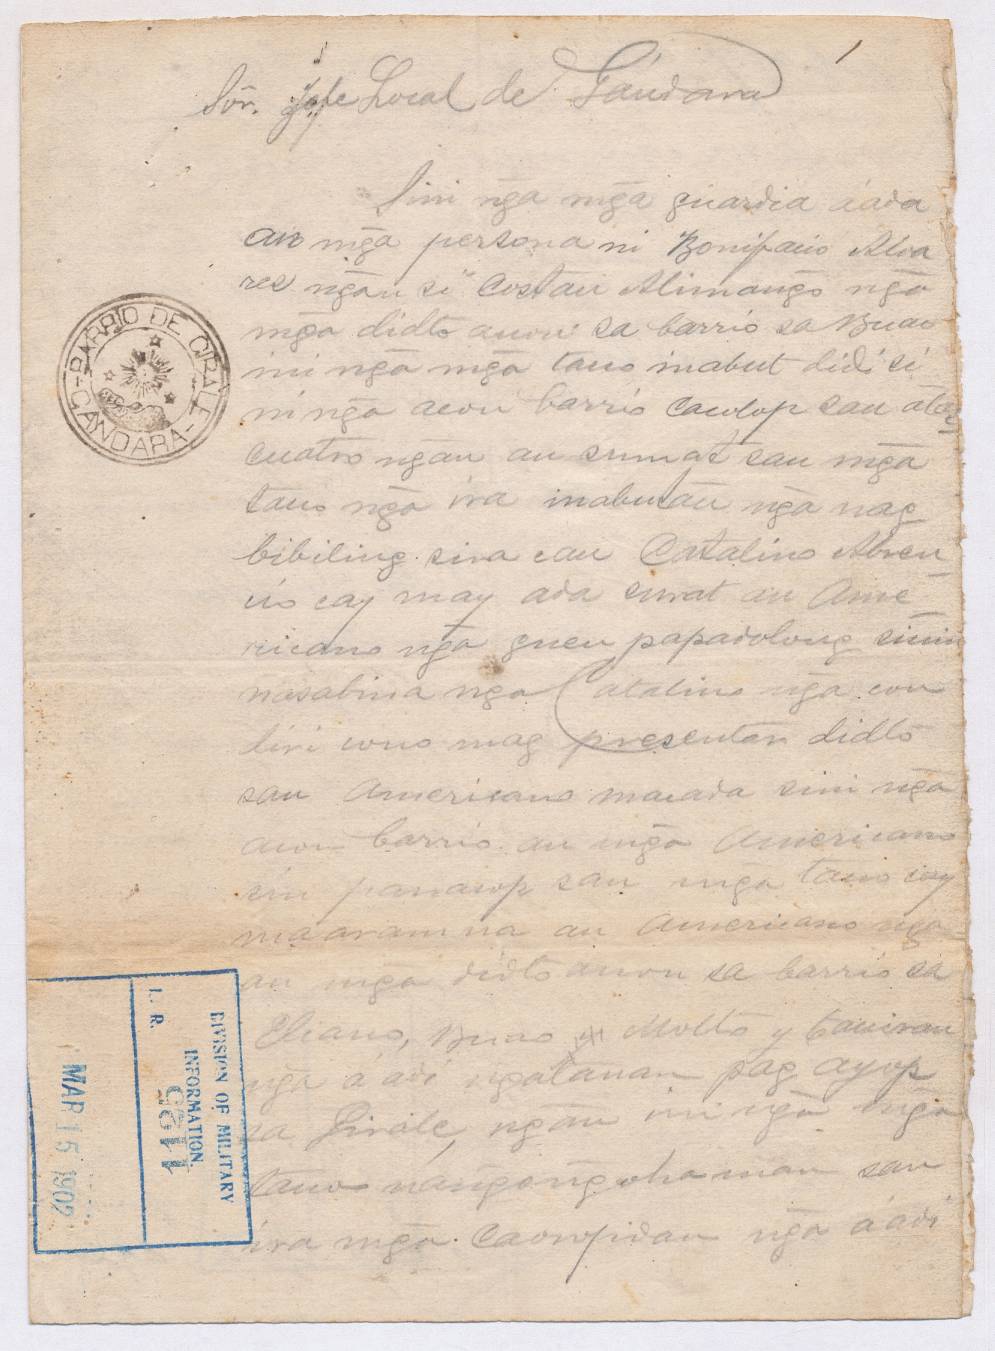 1
Sōr. Jefe Local de Gándara
Sini nḡa mḡa guardia áada
an mḡa persona ni Bonifacio Alva
res nḡan si Costan Alimango nḡa
mḡa didto anon sa barrio sa Buao
ini nḡa mḡa tauo inabut didi si
ni nḡa acon barrio caolop san alas
cuatro nḡan an surmat san mḡa
tauo nḡa ira inabután nḡa nag
bibiling sira can Catalino Abren
cay may ada surat an Ame
ricano nḡa guen papadolong sinin
nasabina nḡa Catalino nḡa con
diri cono mag presentar didto
san Americano macada sini nḡa
acon barrio an mḡa Americano
sin panacop san mḡa tauo cay
maaram na an Americano nḡa
an mḡa didto anon sa barrio sa
Eliano, Buao Molto y Caniran
nḡa áadi nḡatanan pag ayop
sa Girale, nḡan ini nḡa mḡa
tauo man san
ira mḡa Caoropidan nḡa áadi
BARRIO DE GIRALE
-GANDARA-
DIVISION OF MILITARY
INFORMATION.
L. R.
MAR 15 1902